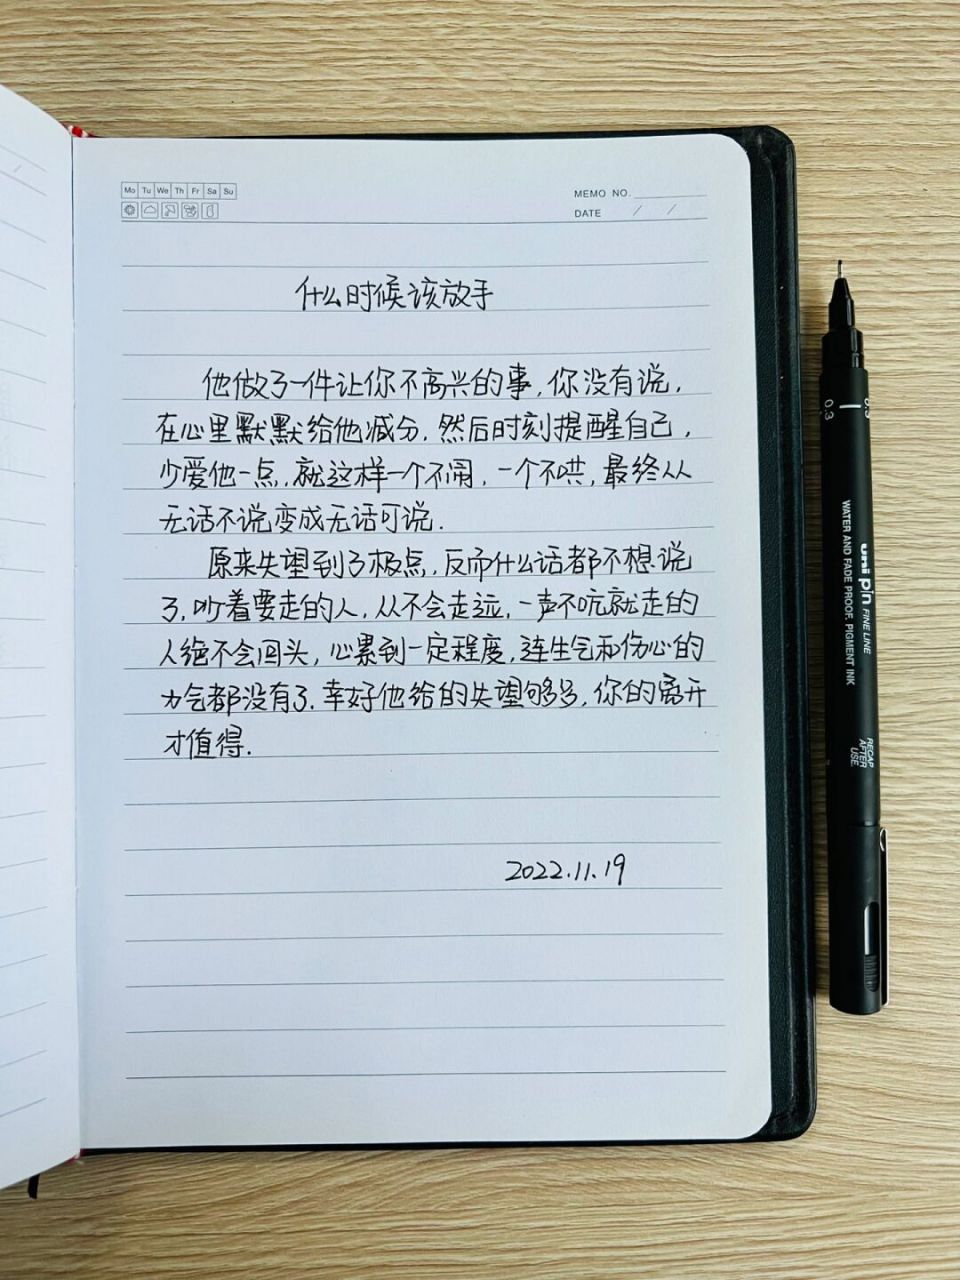 Mo Tu We Th Fr Sa Su
MEMO NO.
DATE / /
什么时候该放手
他做了一件让你不高兴的事,你没有说,
在心里默默给他减分,然后时刻提醒自己,
少爱他一点,就这样一个不闹,一个不哄,最终从
无话不说变成无话可说.
原来失望到了极点,反而什么话都不想说
了,吵着要走的人,从不会走远,一声不吭就走的
人绝不会回头,心累到一定程度,连生气和伤心的
力气都没有了.幸好他给的失望够多,你的离开
才值得.
2022.11.19
0.3
0.3
uni pin FINE LINE
WATER AND FADE PROOF, PIGMENT INK
RECAP
AFTER
USE.